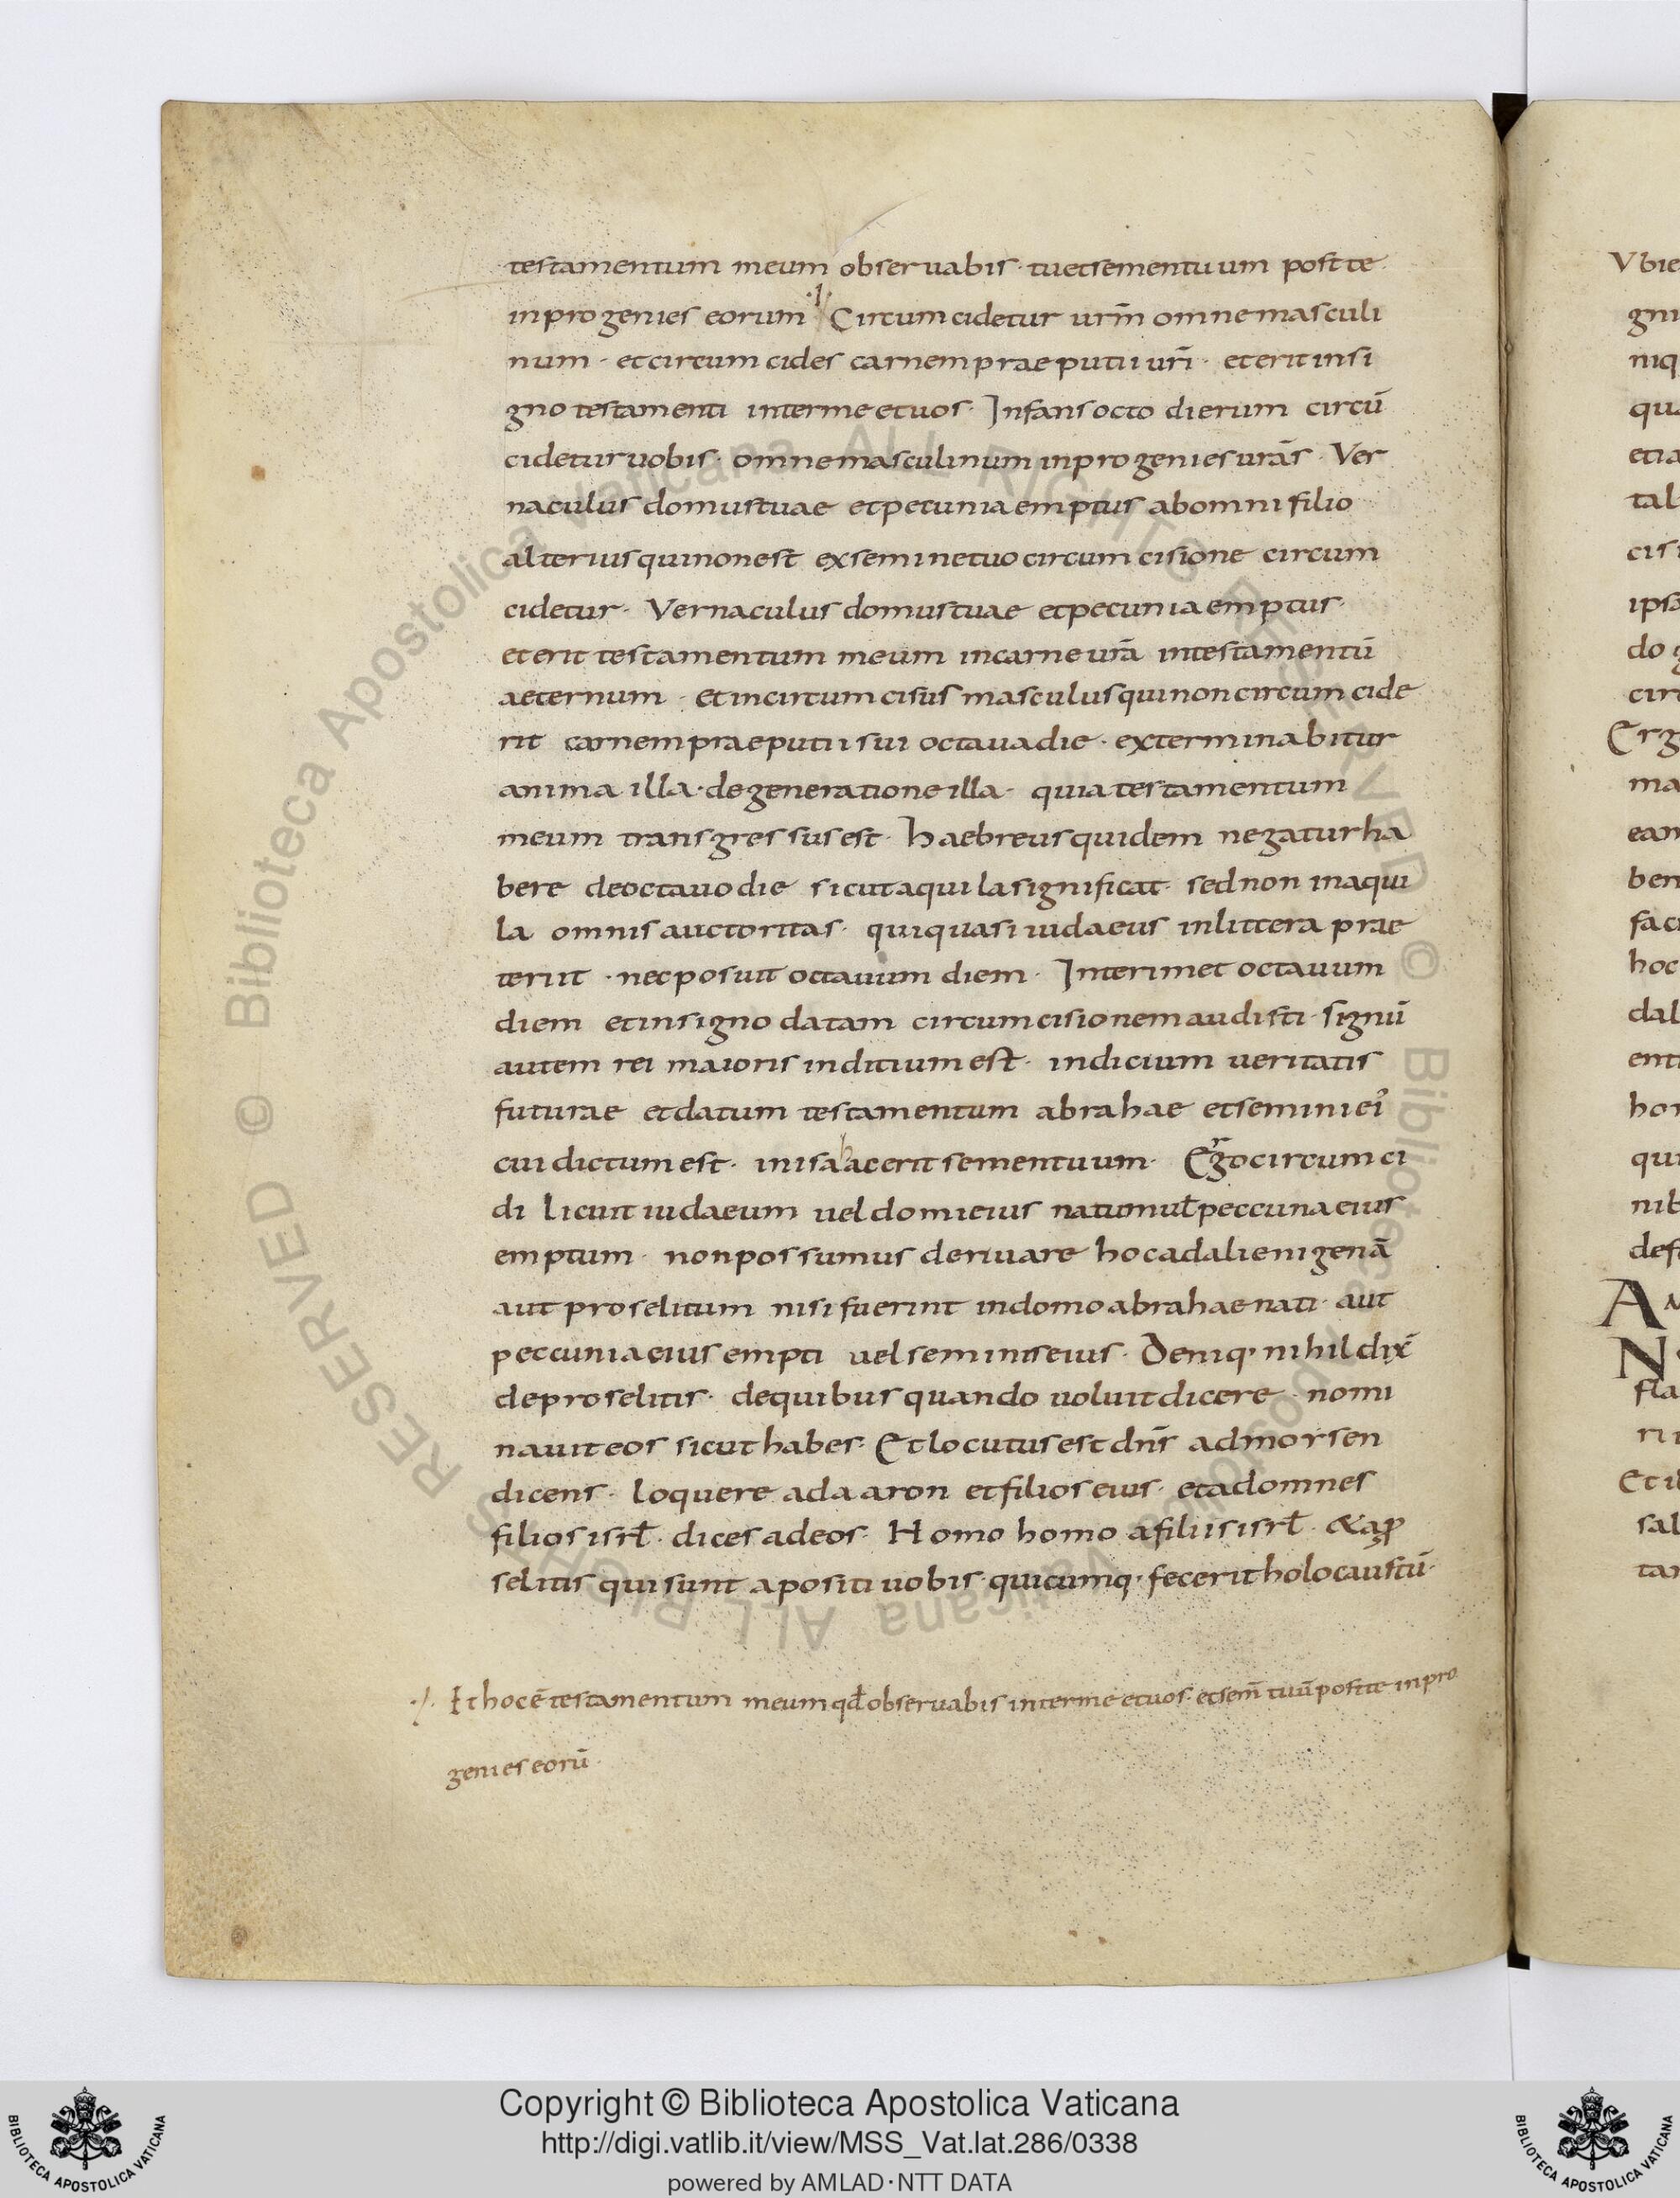 testamentum meum obseruabis · tu et semen tuum post te ·
in progenies eorum ·/· Circumcidetur urm̄ omne masculi
num · et circumcides carnem praeputii uri̅ · et erit in si
gno testamenti inter me et uos · Infans octo dierum circū
cidetur uobis · omne masculinum in progenies urās · Ver
naculus domus tuae et pecunia emptus ab omni filio
alterius qui non est ex semine tuo circumcisione circum
cidetur · Vernaculus domus tuae et pecunia emptus ·
et erit testamentum meum in carne urā in testamentū
aeternum · et incircumcisus masculus qui non circumcide
rit carnem praeputii sui octaua die · exterminabitur
anima illa · de generatione illa · quia testamentum
meum transgressus est · haebreus quidem negatur ha
bere de octauo die sicut aquila significat · sed non in aqui
la omnis auctoritas · qui quasi iudaeus in littera prae
teriit · nec posuit octauum diem · Interim et octauum
diem et in signo datam circumcisionem audisti · signū
autem rei maioris inditium est · indicium ueritatis
futurae et datum testamentum abrahae et semini ei᾽
cui dictum est · in isahac erit semen tuum · Ergo circumci
di licuit iudaeum uel domi eius natum uꝉ peccuna eius
emptum · non possumus deriuare hoc ad alienigenā
aut proselitum nisi fuerint in domo abrahae nati · aut
peccunia eius empti uel seminis eius · Deniq· nihil dix̄
de proselitis · de quibus quando uoluit dicere · nomi
nauit eos sicut habes · Et locutus est dn̄s ad morsen
dicens · loquere ad aaron et filios eius · et ad omnes
filios isrꝉ · dices ad eos · Homo homo a filiis isrꝉ · & a ꝓ
selitis qui sunt apositi uobis · quicumq· fecerit holocaustū ·
·/· Et hoc ē testamentum meum qđ obseruabis inter me et uos · et sem̄ tuū post te in pro
genies eorū ·
Vbie
gni
niq
qua
etia
tal
cis
ips
do g
cir
Erg
ma
ean
ben
fac
hoc
dal
ent
hor
qui
nib
def
A
N
fla
ri
Et i
sal
tar
© Biblioteca Apostolica Vaticana ALL RIGHTS RESERVED © Biblioteca Apostolica Vaticana ALL RIGHTS RESERVED
Copyright © Biblioteca Apostolica Vaticana
http://digi.vatlib.it/view/MSS_Vat.lat.286/0338
powered by AMLAD · NTT DATA
BIBLIOTECA APOSTOLICA VATICANA
BIBLIOTECA APOSTOLICA VATICANA